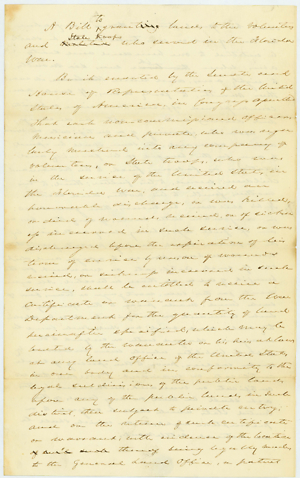 A Bill to granting lands to the Volunteers
State troops
and who served in the Florida
War.
Be it enacted by the Senate and
House of Representatives of the United
States of America, in Congress assembled
That each non-commissioned officer
musician and private, who was regu
larly mustered into any company of
volunteers, or State troops, who was
in the service of the United States, in
the Florida War, and received an
honourable discharge, or was killed,
or died of wounds received, or of sickness
incurred in such service, or was
discharged before the expiration of his
term of service by reason of wounds
received, or sickness incurred in such
service, shall be entitled to receive a
Certificate or warrant from the War
Department for the quantity of land
hereinafter specified, which may be
located by the warrantee or his heirs at law
at any land office of the United States
in one body and in conformity to the
legal subdivisions of the public lands,
upon any of the public lands in such
district then subject to private entry,
and on the return of such certificate
or warrant, with evidence of the location
thereof being legally made,
to the General Land Office, a patent